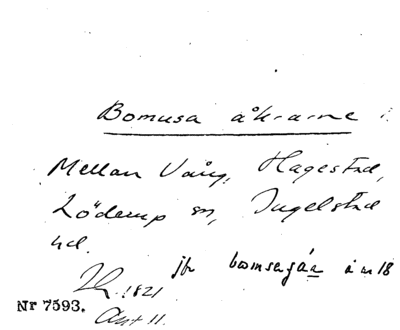 Bomusa åkrarne i
Mellan Vång, Hagestad,
Löderup sn, Ingelstad
hd.
jfr bomsagáa
1821
Nr 7593.
Akt 11.